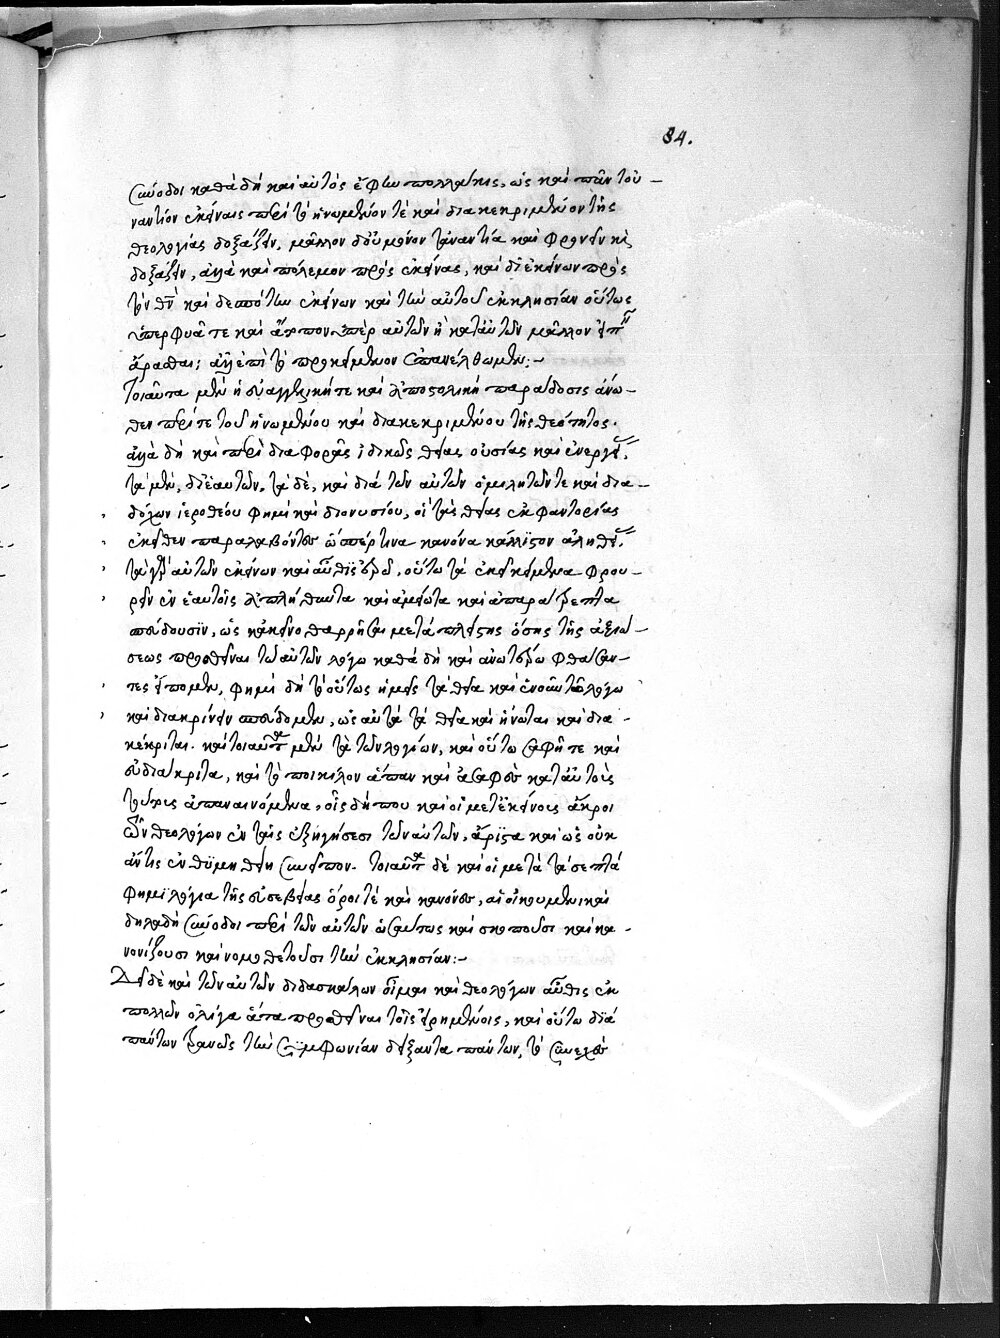 84.
σύνοδοι καθὰ δὴ καὶ αὐτὸς ἔφην πολλάκις, ὡς καὶ πᾶν τοὐ-
ναντίον ἐκείναις περὶ τὸ ἡνωμένον τὲ καὶ διακεκριμένον τῆς
θεολογίας δοξάζειν, μᾶλλον δ' οὐ μόνον τἀναντία καὶ φρονεῖν κὶς
δοξάζειν, ἀλλὰ καὶ πόλεμον πρὸς ἐκείνας, καὶ δι' ἐκείνων πρὸς
τὸν θν̅ καὶ δεσπότην ἐκείνων καὶ τὴν αὐτοῦ ἐκκλησίαν οὕτως
ὑπερφυᾶ τε καὶ ἄτοπον ὑπὲρ αὐτῶν ἢ κατ' αὐτῶν μᾶλλον εἰπεῖν
ἄρασθαι; ἀλλ' ἐπὶ τὸ προκείμενον ἐπανέλθωμεν:-
Τοιαῦτα μὲν ἡ εὐαγγελικήτε καὶ ἀποστολικὴ παράδοσις ἄνω-
θεν περίτε τοῦ ἡνωμένου καὶ διακεκριμένου τῆς θεότητος.
ἀλλὰ δὴ καὶ περὶ διαφορᾶς ἰδικῶς θείας οὐσίας καὶ ἐνεργείας
τὰ μὲν, δι' ἑαυτῶν, τὰ δὲ, καὶ διὰ τῶν αὐτῶν ὁμιλητῶντε καὶ δια-
δόχων ἱεροθέου φημὶ καὶ διονυσίου, οἱ τὰς θείας ἐκφαντορίας
ἐκεῖθεν παραλαβόντες ὥσπέρ τινα κανόνα κάλλιστον ἀληθείας
τὰ παρ' αὐτῶν ἐκείνων καὶ αὖθις ἡμῖν, οὕτω τὰ ἐκεῖ κείμενα φρου-
ρεῖν ἐν ἑαυτοῖς ἀπλήθυντα καὶ ἀμείωτα καὶ ἀπαράτρεπτα
σπεύδουσϊν, ὡς κἀκεῖνο θαρρῆσαι μετὰ πλείστης ὅσης τῆς ἀξιώ-
σεως προσθεῖναι τῶ αὐτῶν λόγω καθὰ δὴ καὶ ἀνωτέρω φθάσαν-
τες εἴπομεν, φημὶ δὴ τὸ οὕτως ἡμεῖς τὰ θεῖα καὶ ἑνοῦν τῶ λόγω
καὶ διακρίνειν σπεύδομεν, ὡς αὐτὰ τὰ θεῖα καὶ ἥνωται καὶ δια-
κέκριται. καὶ τοιαῦτα μὲν τὰ τῶν λογίων, καὶ οὕτω σαφῆ τε καὶ
εὐδιάκριτα, καὶ τὸ ποικίλον ἅπαν καὶ ἀσαφὲς κατ' αὐτοὺς
τούτους ἀπαναινόμενα, οἷς δήπου καὶ οἱ μετ' ἐκείνοις ἄκροι
τῶν θεολόγων ἐν ταῖς ἐξηγήσεσι τῶν αὐτῶν, ἄριστα καὶ ὡς οὐκ
ἄν τις ἐνθυμηθείη συνεῖπον. τοιαῦτα δὲ καὶ οἱ μετὰ τὰ σεπτὰ
φημὶ λόγια τῆς εὐσεβείας ὅροι τὲ καὶ κανόνες, αἱ οἰκουμενικαὶ
δηλαδὴ σύνοδοι περὶ τῶν αὐτῶν ὡσαύτως καὶ σκοποῦσι καὶ κα-
νονίζουσι καὶ νομοθετοῦσι τὴν ἐκκλησίαν:-
Δεῖ δὲ καὶ τῶν αὐτῶν διδασκάλων οἶμαι καὶ θεολόγων αὖθις ἐκ
πολλῶν ὀλίγα ἄττα προσθεῖναι τοῖς εἰρημένοις, καὶ οὕτω διὰ
πάντων τρανῶς τὴν συμφωνίαν δείξαντα πάντων, τὸ συνελὸν